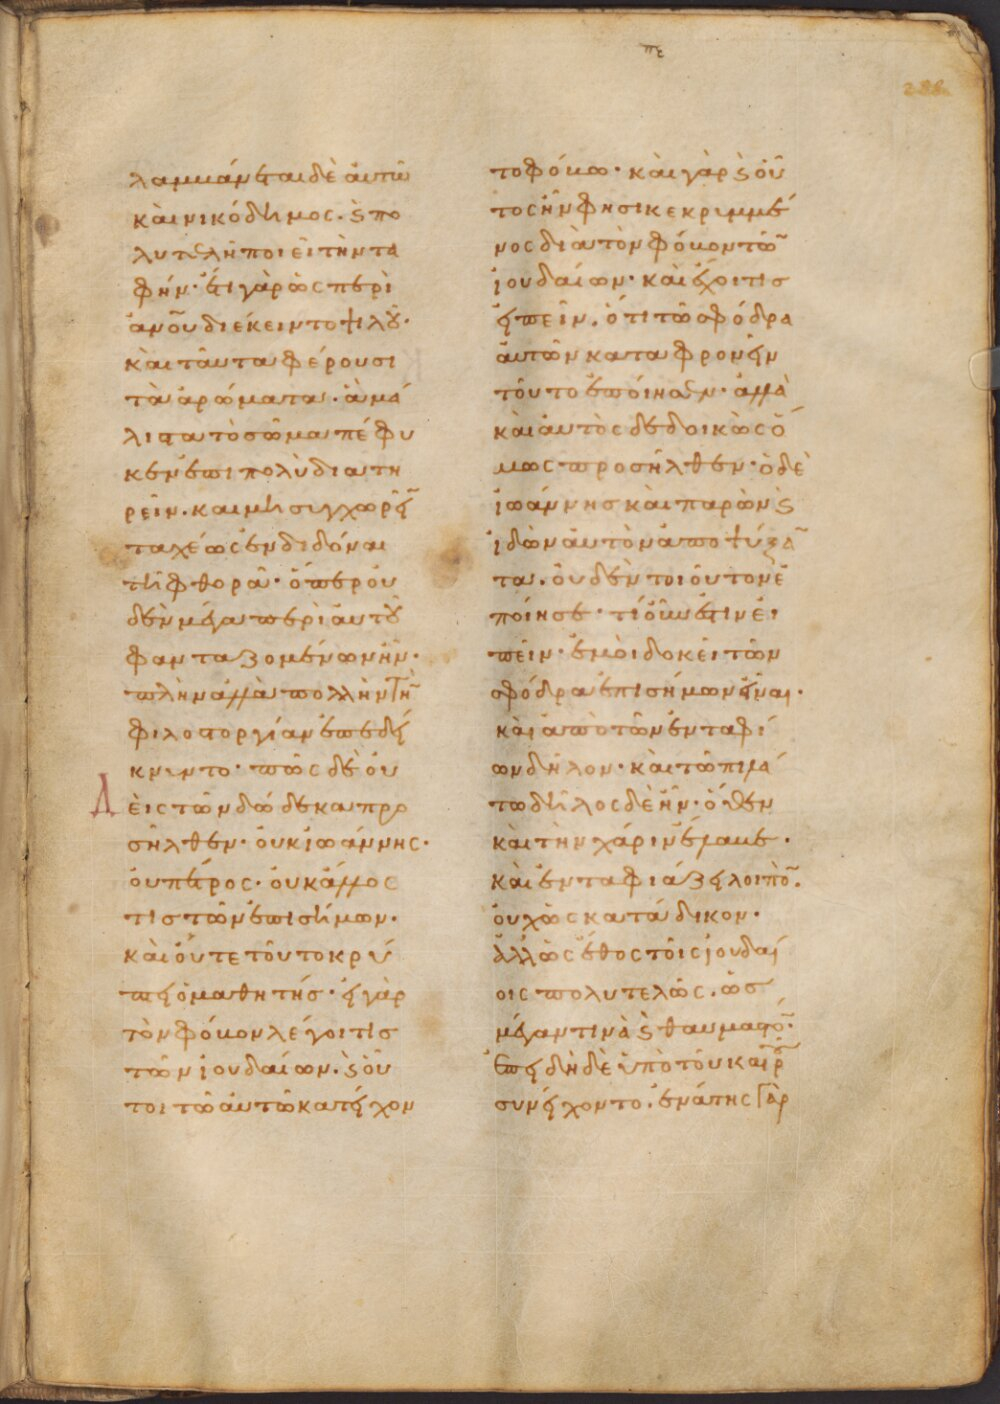 πε
288
λαμβάνεται δὲ ἀυτῶ
κὰι νικόδημος. ϗ πο
λυτελῆ ποιεῖ τὴν τα
φήν· ἔτι γὰρ ὡς περὶ
ἀνου διέκειντο ψιλοῦ·
κὰι ταῦτα φέρουσι
τὰ ἀρώματα. ἃ μά
λιστα τὸ σῶμα πέφυ
κεν ἐπιπολὺ διατη
ρεῖν. και μὴ συγχωρεῖ
ταχέως ἐνδιδόναι
τῆ φθορᾶ· ὅπερ ὀυ
δὲν μέγα περὶ ἀυτοῦ
φανταζομένων ἦν·
πλὴν ἀλλὰ πολλὴν τὴν
φιλοστοργίαν ἐπεδεί
κνυντο· πῶς δὲ ὀυ
δεὶς τῶν δώδεκα προ
σῆλθεν· ὀυκ ἰωάννης·
ὀυ πέτρος· ὀυκ ἄλλος
τις τῶν ἐπισήμων·
κὰι ὀύτε τοῦτο κρύ
πτει ὁ μαθητής· ἐι γὰρ
τὸν φόβον λέγοι τις
τῶν ἰουδαίων. ϗ οὗ
τοι τῶ ἀυτῶ κατείχον
το φόβω· κὰι γὰρ ϗ οὗ
τος ἦν φησι κεκριμμέ
νος διὰ τὸν φόβον τῶν
ἰουδαίων· κὰι ἔχοι τις
ἐιπεῖν. ὅτι τῶ σφόδρα
ἀυτῶν καταφρονεῖν
τοῦτο ἐποίησεν· ἀλλὰ
κὰι ἀυτὸς δεδοικὼς ὅ
μως προσῆλθεν· ὁ δὲ
ἰωάννης κὰι παρὼν ϗ
ἰδὼν ἀυτὸν ἀποψύξαν
τα. ὀυδὲν τοιοῦτον ἐ
ποίησε· τί οὖν ἔστιν ἐι
πεῖν· ἐμοὶ δοκεῖ τῶν
σφόδρα ἐπισήμων εἶναι·
κὰι ἀπὸ τῶν ἐνταφί
ων δῆλον· κὰι τῶ πιλά
τω δῆλος δὲ ἦν· ὅθεν
κὰι τὴν χάριν ἔλαβε·
κὰι ἐνταφιάζει λοιπόν.
ὀυχ ὡς κατάδικον·
ἀλλ' ὡς ἔθος τοῖς ἰουδαί
οις πολυτελῶς. ὡσ
μέγαν τινὰ ϗ θαυμαστόν·
ἐπειδὴ δὲ ὑπὸ τοῦ καιροῦ
συνείχοντο. ἐννάτης γὰρ